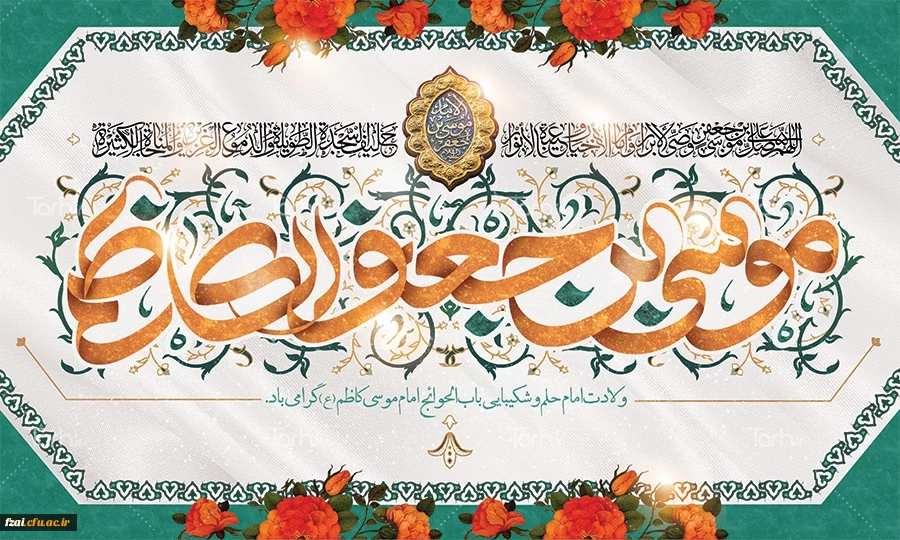 الإمام
موسی بن
جعفر
اللهم صل علی موسی بن جعفر وصی الأبرار و إمام الأخیار و عیبة الأنوار
حلیف السجدة الطویلة و الدموع الغزیرة و المناجاة الکثیرة
موسی بن جعفر الکاظم
ولادت امام حلم و شکیبایی باب الحوائج امام موسی کاظم (ع) گرامی باد.
fzai.cfu.ac.ir